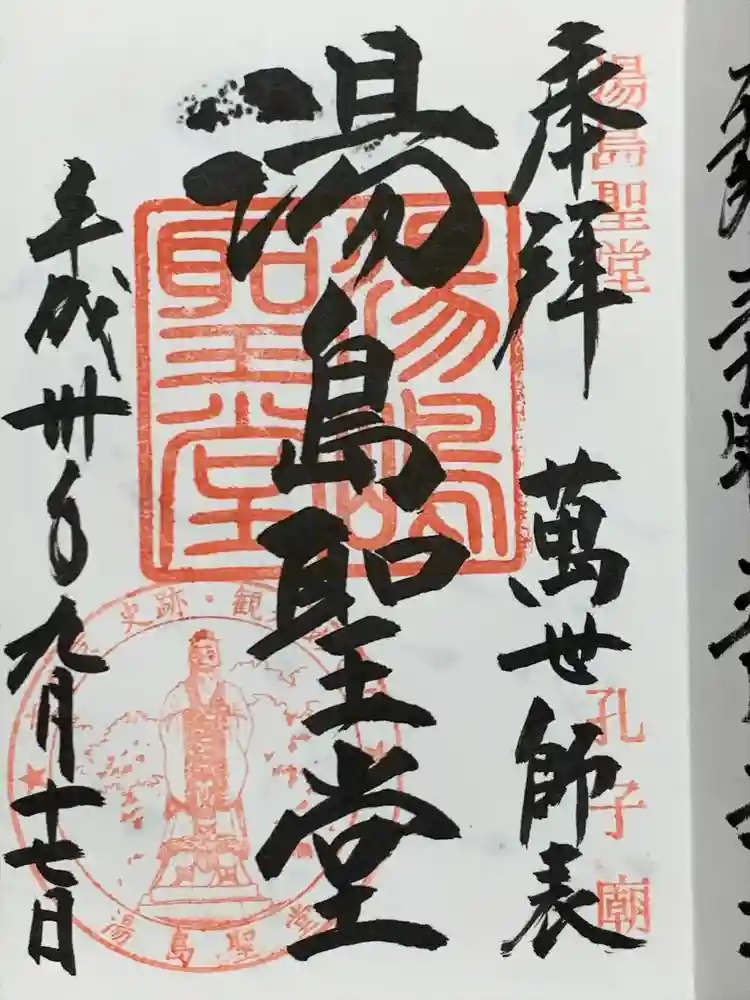 湯島聖堂
孔子廟
奉拝
萬世師表
湯島聖堂
湯島聖堂
平成卅年九月十七日
史跡・観
湯島聖堂